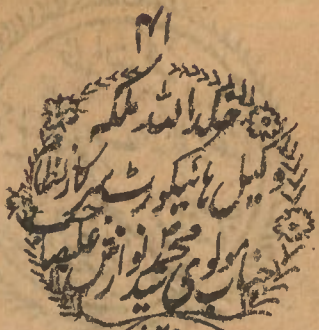 خلد اللہ ملکہ
وکیل ہائیکورٹ سرکار نظام
جناب مولوی سید محمد نوازش علیصا